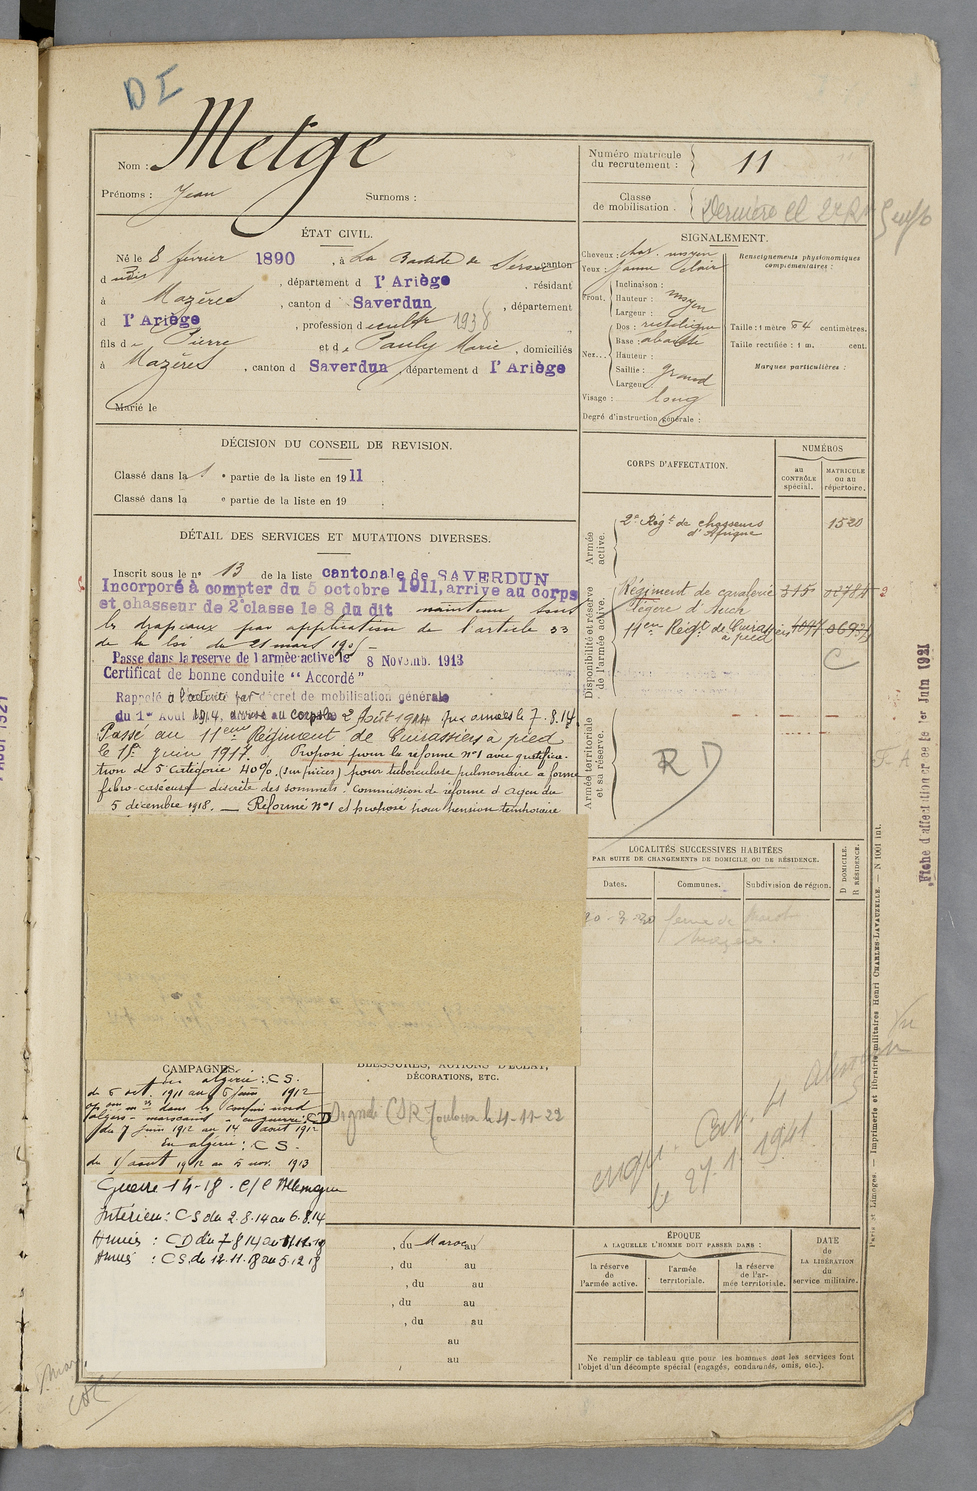 D I
Nom : Metge
Prénoms : Jean Surnoms :
ÉTAT CIVIL.
Né le 8 février 1890, à La Bastide de Sérou canton
d udit, département d l'Ariège, résidant
à Mazères, canton d Saverdun, département
d l'Ariège, profession d cultr 1938
fils de Pierre et de Pauly Marie, domiciliés
à Mazères, canton d Saverdun, département d l'Ariège
Marié le
DÉCISION DU CONSEIL DE REVISION.
Classé dans la 1e partie de la liste en 1911.
Classé dans la e partie de la liste en 19 .
DÉTAIL DES SERVICES ET MUTATIONS DIVERSES.
Inscrit sous le n° 13 de la liste cantonale de SAVERDUN
Incorporé à compter du 5 octobre 1911, arrive au corps
et chasseur de 2e classe le 8 du dit maintenu sous
les drapeaux par application de l'article 33
de la loi du 21 mars 1905 -
Passe dans la reserve de l'armée active le 8 Novemb. 1913
Certificat de bonne conduite "Accordé"
Rappelé à l'activité par décret de mobilisation générale
du 1er Août 1914, arrivé au corps le 2 Août 1914 Aux armées le 7.8.14
Passé au 11eme Régiment de Cuirassiers à pied
le 1er juin 1917. Proposé pour la réforme N°1 avec gratifica-
tion de 5 catégorie 40% (sur pièces) pour tuberculose pulmonaire à forme
fibro-caséeuse discrète des sommets. Commission de réforme d'Agen du
5 décembre 1918. — Réformé N°1 et proposé pour pension temporaire
CAMPAGNES.
En algérie : C S.
du 5 oct. 1911 au 6 juin 1912
dans les confins nord
algero-marocains - en guerre : CD
du 7 juin 1912 au 14 août 1912
En algérie : C S.
du 15 août 1912 au 5 nov. 1913
Guerre 14-18 - C/C Allemagne
Intérieur : CS du 2.8.14 au 6.8.14
Armées : CD du 7 8 14 au 11.11.18
Armées : CS du 12.11.18 au 5.12.18
BLESSURES, ACTIONS D'ÉCLAT,
DÉCORATIONS, ETC.
CDR Toulouse le 4-11-22
, du Maroc au
, du au
, du au
, du au
, du au
au
au
Numéro matricule
du recrutement : 11
Classe
de mobilisation .
SIGNALEMENT.
Cheveux : chat. moyen
Yeux : jaune clair
Front. Inclinaison :
Hauteur : moyen
Largeur :
Nez... Dos : rectiligne
Base : abaissée
Hauteur :
Saillie : grand
Largeur :
Visage : long
Degré d'instruction générale :
Renseignements physionomiques
complémentaires :
Taille : 1 mètre 64 centimètres.
Taille rectifiée : 1 m. cent.
Marques particulières :
CORPS D'AFFECTATION.
NUMÉROS
au
CONTRÔLE
spécial.
MATRICULE
ou au
répertoire.
Armée
active.
2e Régt de chasseurs
d'Afrique 1520
Disponibilité et réserve
de l'armée active.
Régiment de cavalerie
légère d'Auch
11eme Régt de Cuirassiers
à pied
C
Armée territoriale
et sa réserve.
R D
LOCALITÉS SUCCESSIVES HABITÉES
PAR SUITE DE CHANGEMENTS DE DOMICILE OU DE RÉSIDENCE.
Dates.
Communes.
Subdivision de région.
D DOMICILE.
R RÉSIDENCE.
20-3-30 ferme de
Mazères.
le 27.1.1941
ÉPOQUE
A LAQUELLE L'HOMME DOIT PASSER DANS :
la réserve
de
l'armée active.
l'armée
territoriale.
la réserve
de l'ar-
mée territoriale.
DATE
de
LA LIBÉRATION
du
service militaire.
Ne remplir ce tableau que pour les hommes dont les services font
l'objet d'un décompte spécial (engagés, condamnés, omis, etc.).
Paris et Limoges. — Imprimerie et librairie militaires Henri CHARLES-LAVAUZELLE. — N 1001 int.
Fiche d'affectation créée le 1er Juin 1921